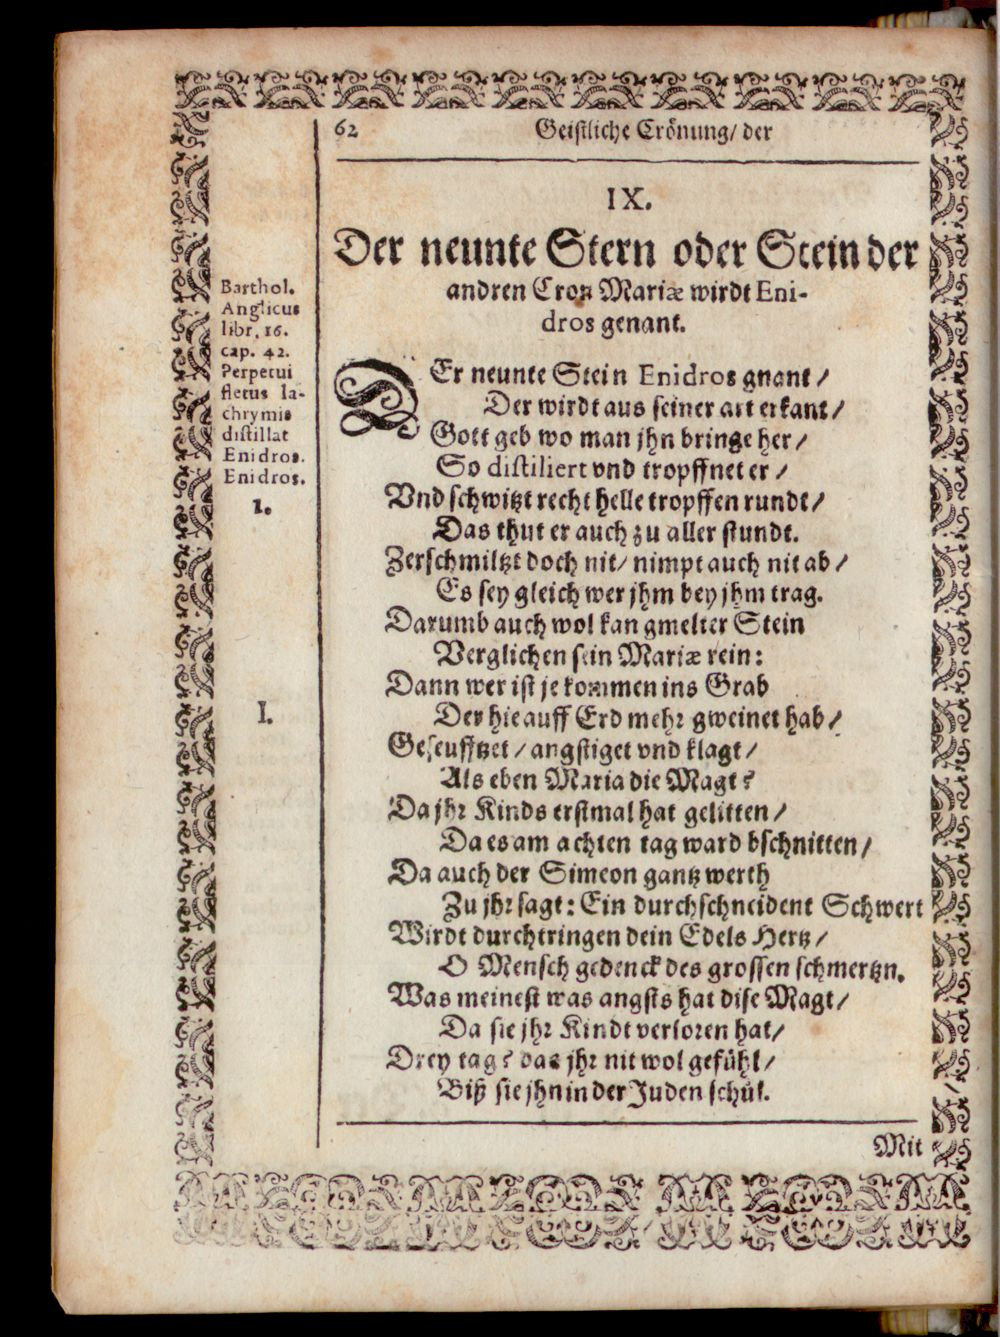 62
Geistliche Crönung/ der
IX.
Der neunte Stern oder Stein der
andren Cron Mariæ wirdt Eni-
dros genant.
Barthol.
Anglicus
libr. 16.
cap. 42.
Perpetui
fletus la-
chrymis
distillat
Enidros.
Enidros.
1.
I.
DEr neunte Stein Enidros gnant/
Der wirdt aus seiner art erkant/
Gott geb wo man jhn bringe her/
So distiliert vnd tropffnet er/
Vnd schwitzt recht helle tropffen rundt/
Das thut er auch zu aller stundt.
Zerschmiltzt doch nit/ nimpt auch nit ab/
Es sey gleich wer jhm bey jhm trag.
Darumb auch wol kan gmelter Stein
Verglichen sein Mariæ rein:
Dann wer ist je kommen ins Grab
Der hie auff Erd mehr gweinet hab/
Geseufftzet/ angstiget vnd klagt/
Als eben Maria die Magt?
Da jhr Kinds erstmal hat gelitten/
Da es am achten tag ward bschnitten/
Da auch der Simeon gantz werth
Zu jhr sagt: Ein durchschneident Schwert
Wirdt durchtringen dein Edels Hertz/
O Mensch gedenck des grossen schmertzn.
Was meinest was angsts hat dise Magt/
Da sie jhr Kindt verloren hat/
Drey tag? das jhr nit wol gefühl/
Biß sie jhn in der Juden schůl.
Mit